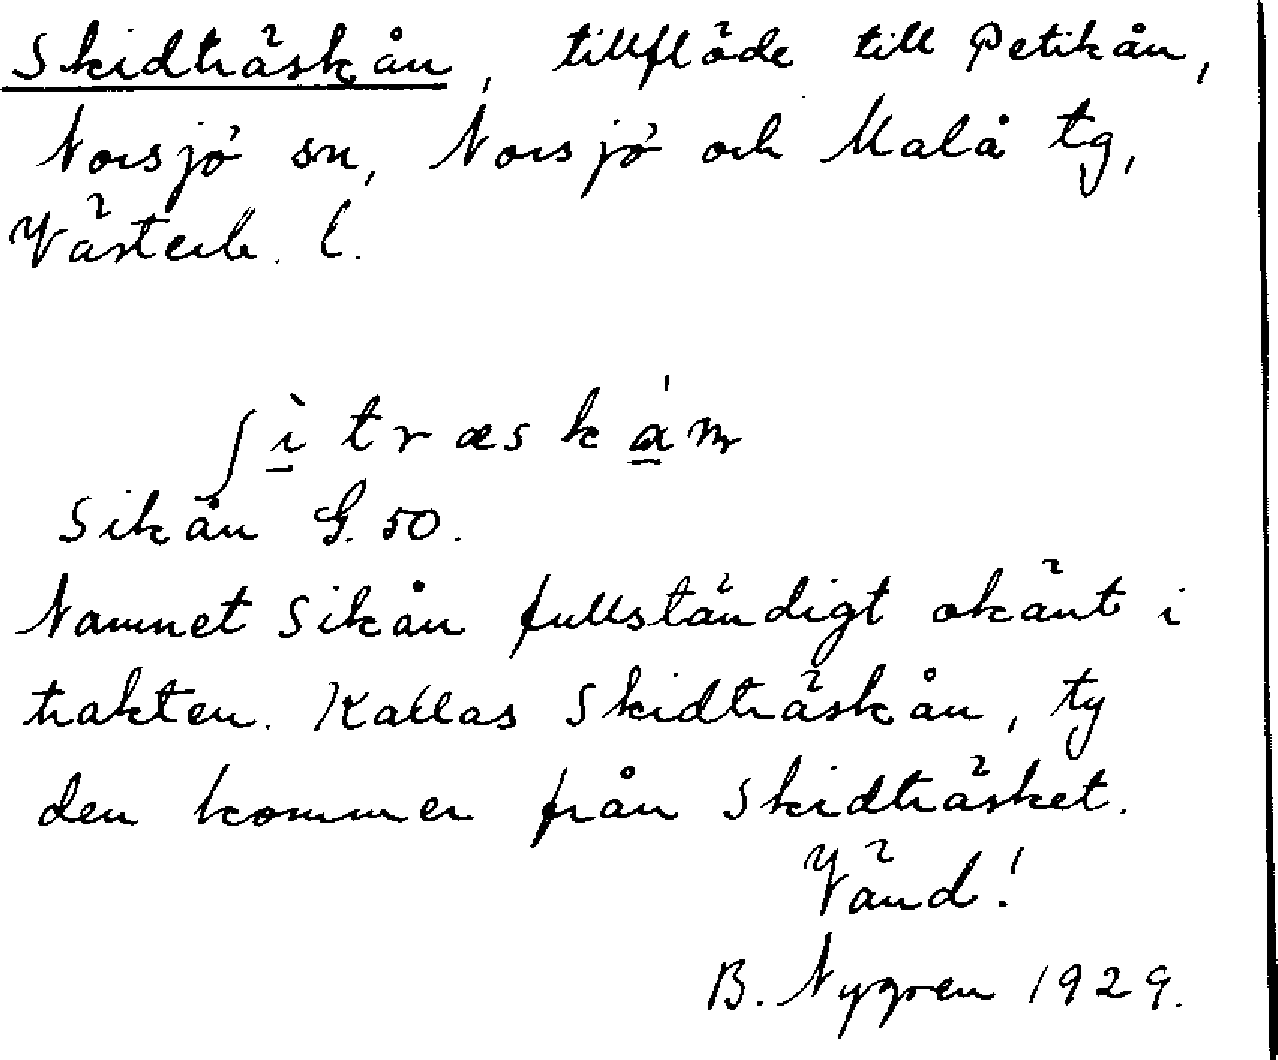 Skidträskån, tillflöde till Petikån,
Norsjö sn, Norsjö och Malå tg,
Västerb. l.
ʃì̲træská̲n
Sikån G. 50.
Namnet Sikån fullständigt okänt i
trakten. Kallas Skidträskån, ty
den kommer från Skidträsket.
Vänd!
B. Nygren 1929.